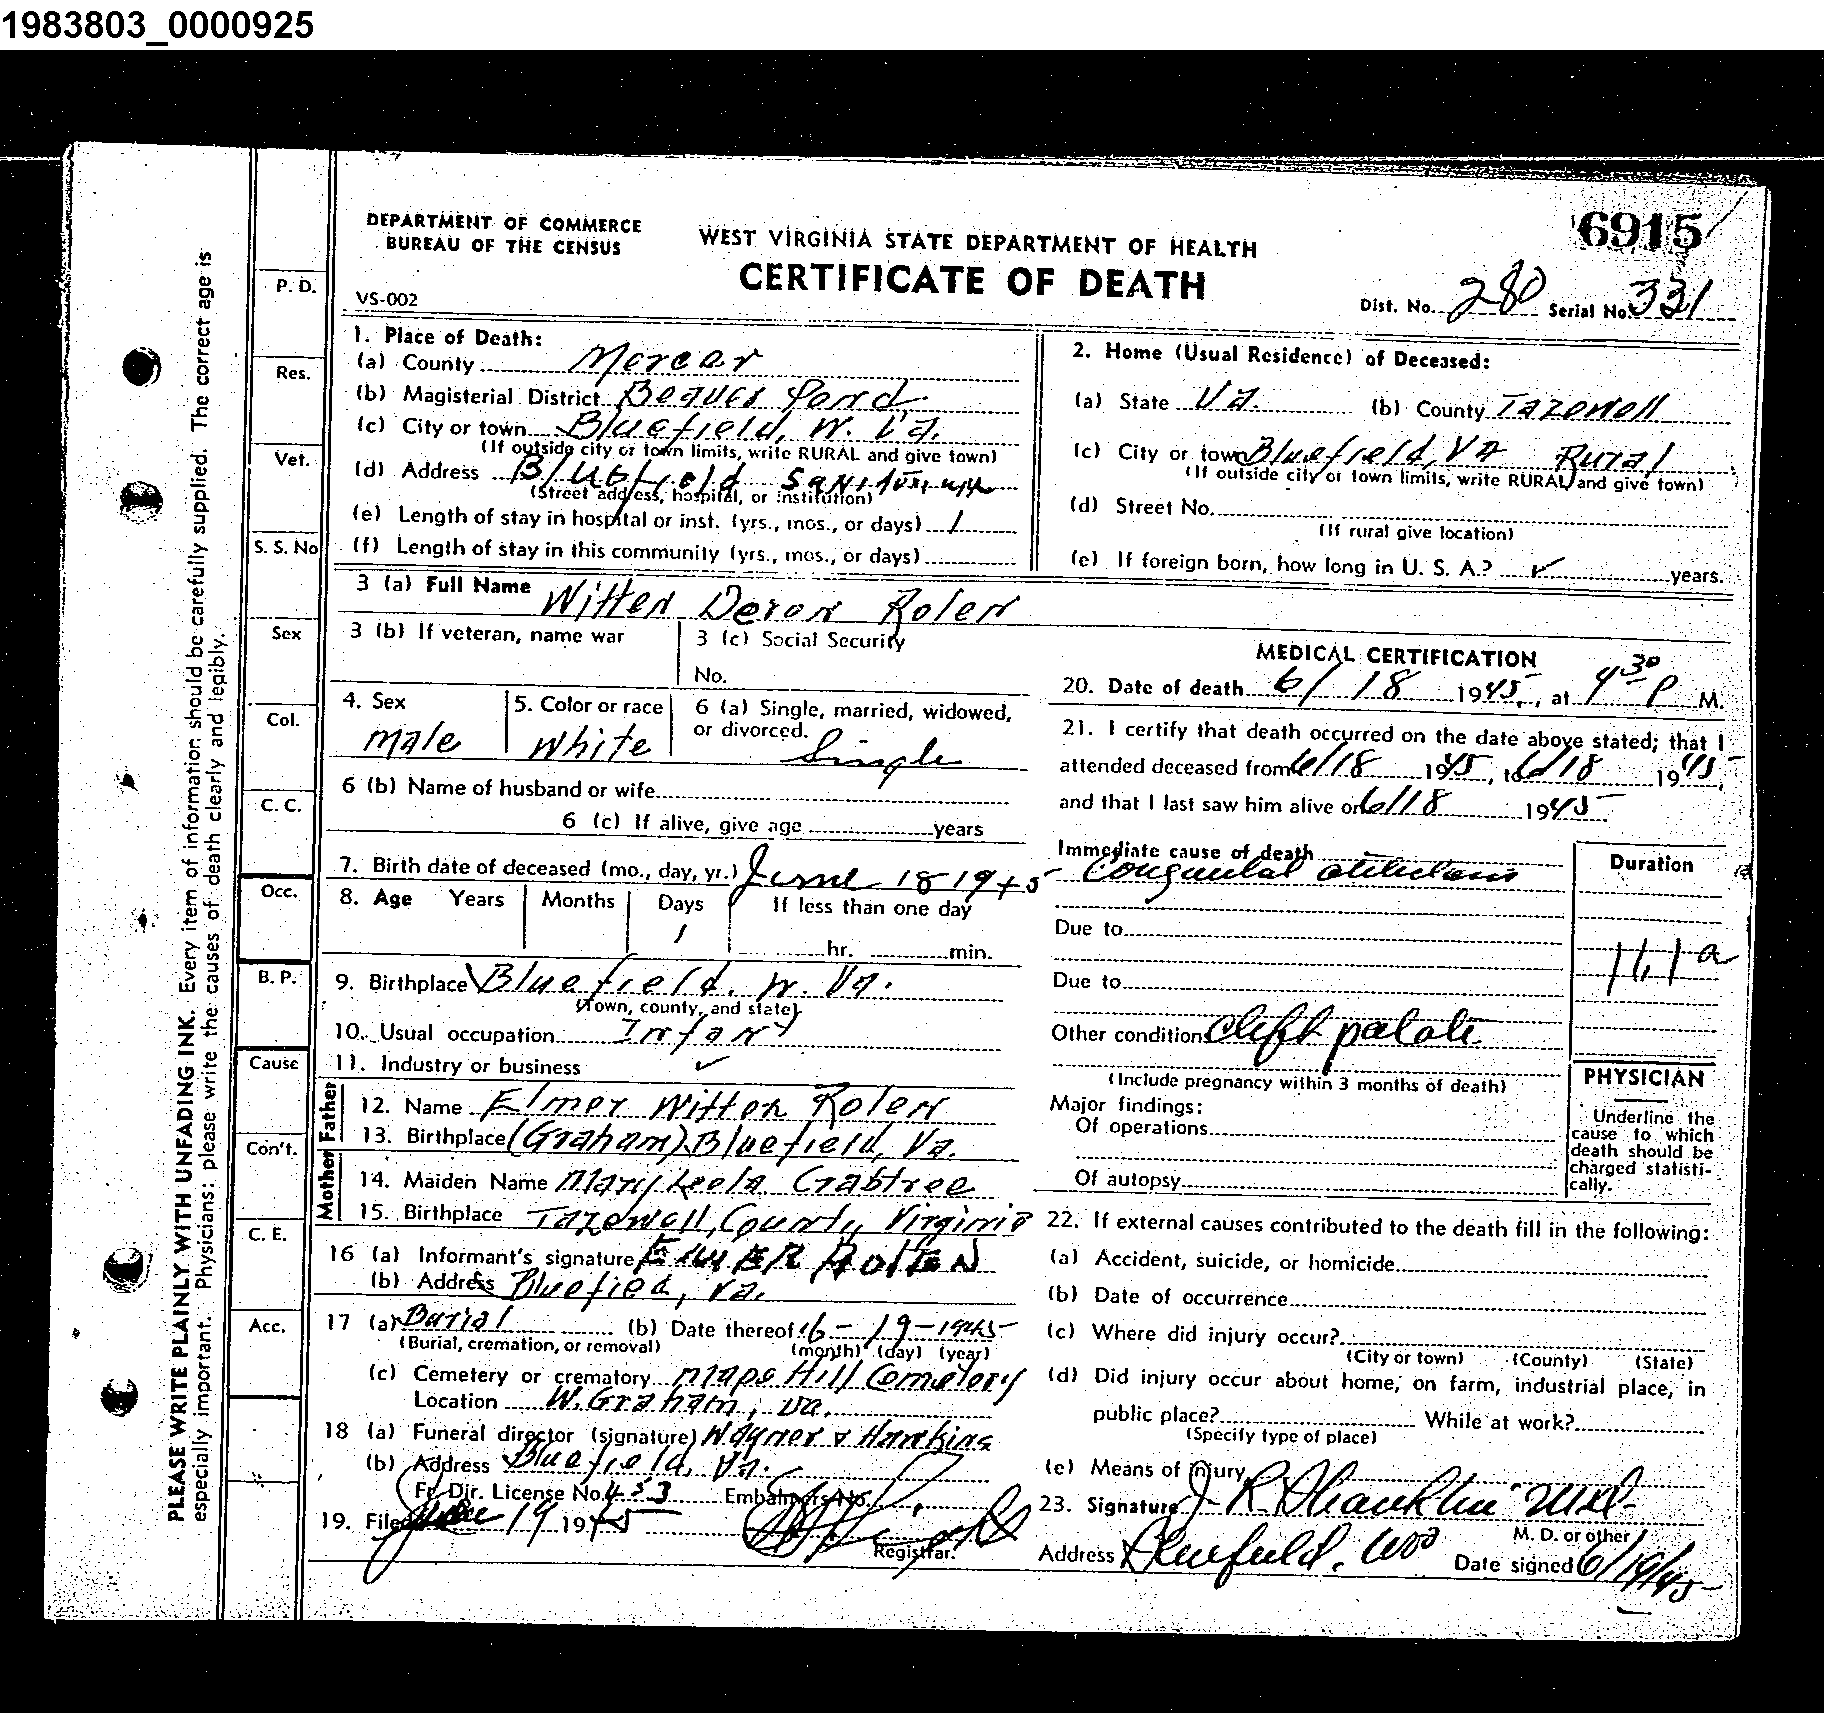 1983803_0000925
6915
DEPARTMENT OF COMMERCE
BUREAU OF THE CENSUS
WEST VIRGINIA STATE DEPARTMENT OF HEALTH
CERTIFICATE OF DEATH
VS-002
Dist. No. 280 Serial No. 331
PLEASE WRITE PLAINLY WITH UNFADING INK. Every item of information should be carefully supplied. The correct age is
especially important. Physicians: please write the causes of death clearly and legibly.
P. D.
Res.
Vet.
S. S. No
Sex
Col.
C. C.
Occ.
B. P.
Cause
Con't.
C. E.
Acc.
1. Place of Death:
(a) County Mercer
(b) Magisterial District Beaver Pond
(c) City or town Bluefield, W. Va.
(If outside city or town limits, write RURAL and give town)
(d) Address Bluefield Sanitarium
(Street address, hospital, or institution)
(e) Length of stay in hospital or inst. (yrs., mos., or days) 1
(f) Length of stay in this community (yrs., mos., or days)
2. Home (Usual Residence) of Deceased:
(a) State Va. (b) County Tazewell
(c) City or town Bluefield, Va Rural
(If outside city or town limits, write RURAL and give town)
(d) Street No.
(If rural give location)
(e) If foreign born, how long in U. S. A.? ✓ years.
3 (a) Full Name Witten Deron Rolen
3 (b) If veteran, name war
3 (c) Social Security
No.
4. Sex
male
5. Color or race
white
6 (a) Single, married, widowed,
or divorced.
Single
6 (b) Name of husband or wife
6 (c) If alive, give age years
7. Birth date of deceased (mo., day, yr.) June 18 1945
8. Age Years Months Days If less than one day
1 hr. min.
9. Birthplace Bluefield, W. Va.
(Town, county, and state)
10. Usual occupation Infant
11. Industry or business ✓
Father
12. Name Elmer Witten Rolen
13. Birthplace (Graham) Bluefield, Va.
Mother
14. Maiden Name Mary Leela Crabtree
15. Birthplace Tazewell, County, Virginia
16 (a) Informant's signature ELMER ROLEN
(b) Address Bluefied, Va.
17 (a) Burial (b) Date thereof 6-19-1945
(Burial, cremation, or removal) (month) (day) (year)
(c) Cemetery or crematory Maps Hill Cemetery
Location W. Graham, Va.
18 (a) Funeral director (signature) Wagner & Hawkins
(b) Address Bluefield, Va.
Fr. Dir. License No. 433 Embalmers No.
19. Filed June 19 1945
Registrar.
MEDICAL CERTIFICATION
20. Date of death 6/18 1945, at 4 30 P M.
21. I certify that death occurred on the date above stated; that I
attended deceased from 6/18 1945, to 6/18 1945,
and that I last saw him alive on 6/18 1945
Immediate cause of death
Congenital
Duration
Due to
Due to
Other condition cleft palate
(Include pregnancy within 3 months of death)
Major findings:
Of operations
Of autopsy
PHYSICIAN
Underline the
cause to which
death should be
charged statisti-
cally.
22. If external causes contributed to the death fill in the following:
(a) Accident, suicide, or homicide
(b) Date of occurrence
(c) Where did injury occur?
(City or town) (County) (State)
(d) Did injury occur about home, on farm, industrial place, in
public place? While at work?
(Specify type of place)
(e) Means of injury
23. Signature J. R. Shanklin M.D.
M. D. or other
Address Bluefield, W Va Date signed 6/19/45